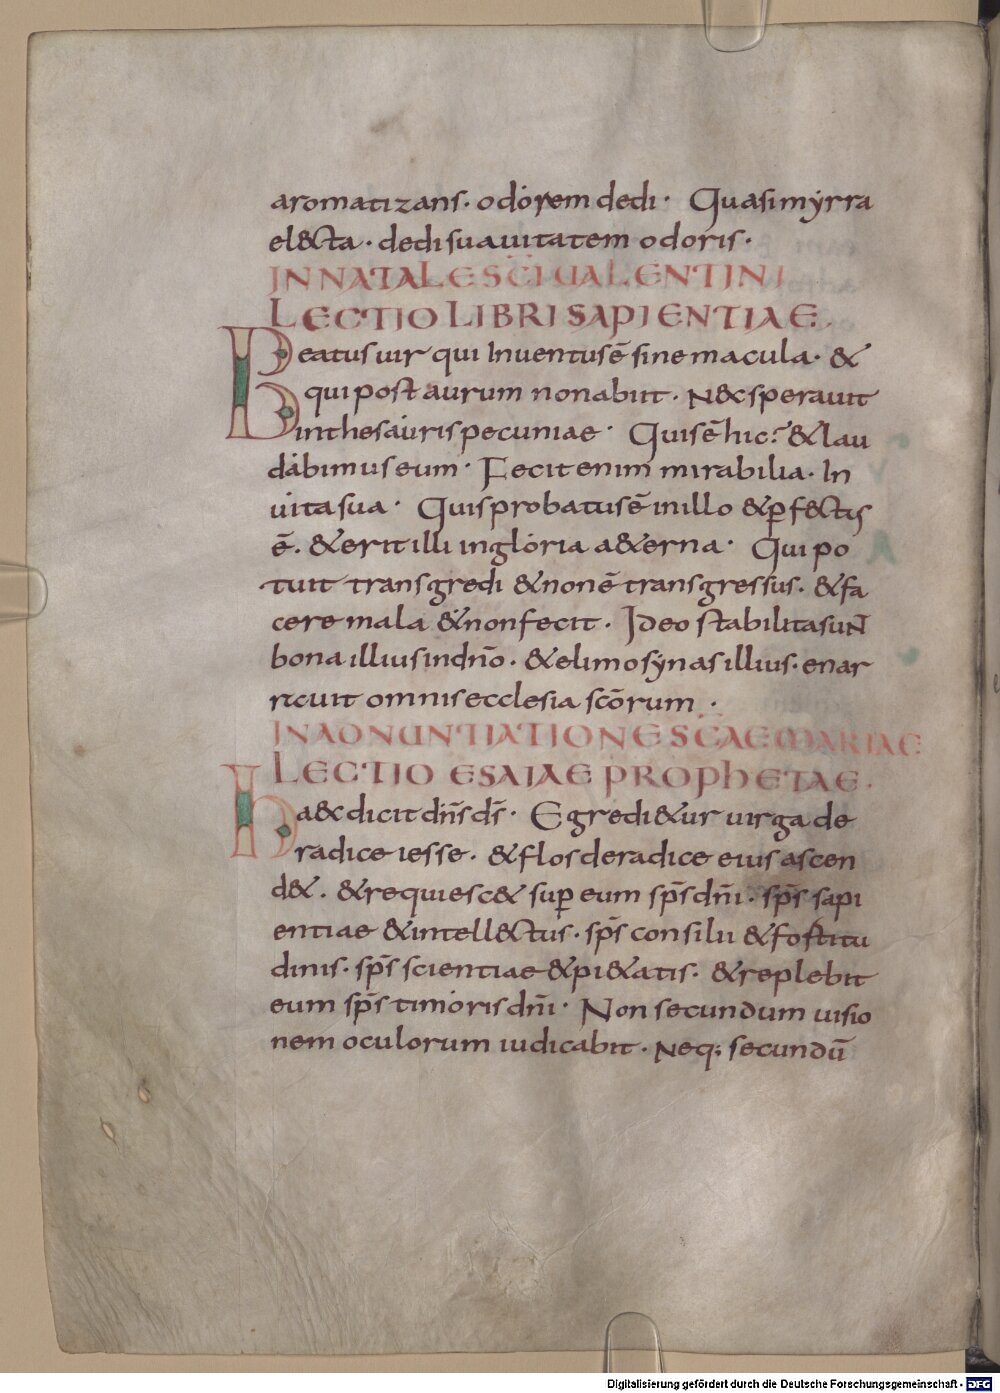 aromatizans. odorem dedi· Quasi myrra
el&cta · dedi suauitatem odoris·
IN NATALE SC̄I UALENTINI
LECTIO LIBRI SAPIENTIAE.
Beatus uir qui Inuentus ē sine macula· &
qui post aurum non abiit. N&c sperauit
in thesauris pecuniae· Quis ē hic? & lau
dabimus eum· Fecit enim mirabilia. In
uita sua· Quis probatus ē in illo & ꝑf&ctus
ē. & erit illi in gloria a&erna· Qui po
tuit transgredi & non ē transgressus. & fa
cere mala & non fecit. Ideo stabilita suN̄
bona illius in dn̄o. & elimosynas illius. enar
rauit omnis ecclesia scōrum ·
IN ADNUNTIATIONE SC̄AE MARIAE
LECTIO ESAIAE PROPHETAE.
Haec dicit dn̄s ds̄· Egredi&ur uirga de
radice iesse. & flos de radice eius ascen
d&. & requiesc& suꝑ eum sp̄s dn̄i. sp̄s sapi
entiae & intell&ctus. sp̄s consilii & fortitu
dinis. sp̄s scientiae & pi&atis. & replebit
eum sp̄s timoris dn̄i· Non secundum uisio
nem oculorum iudicabit. Neq; secundū
Digitalisierung gefördert durch die Deutsche Forschungsgemeinschaft - DFG